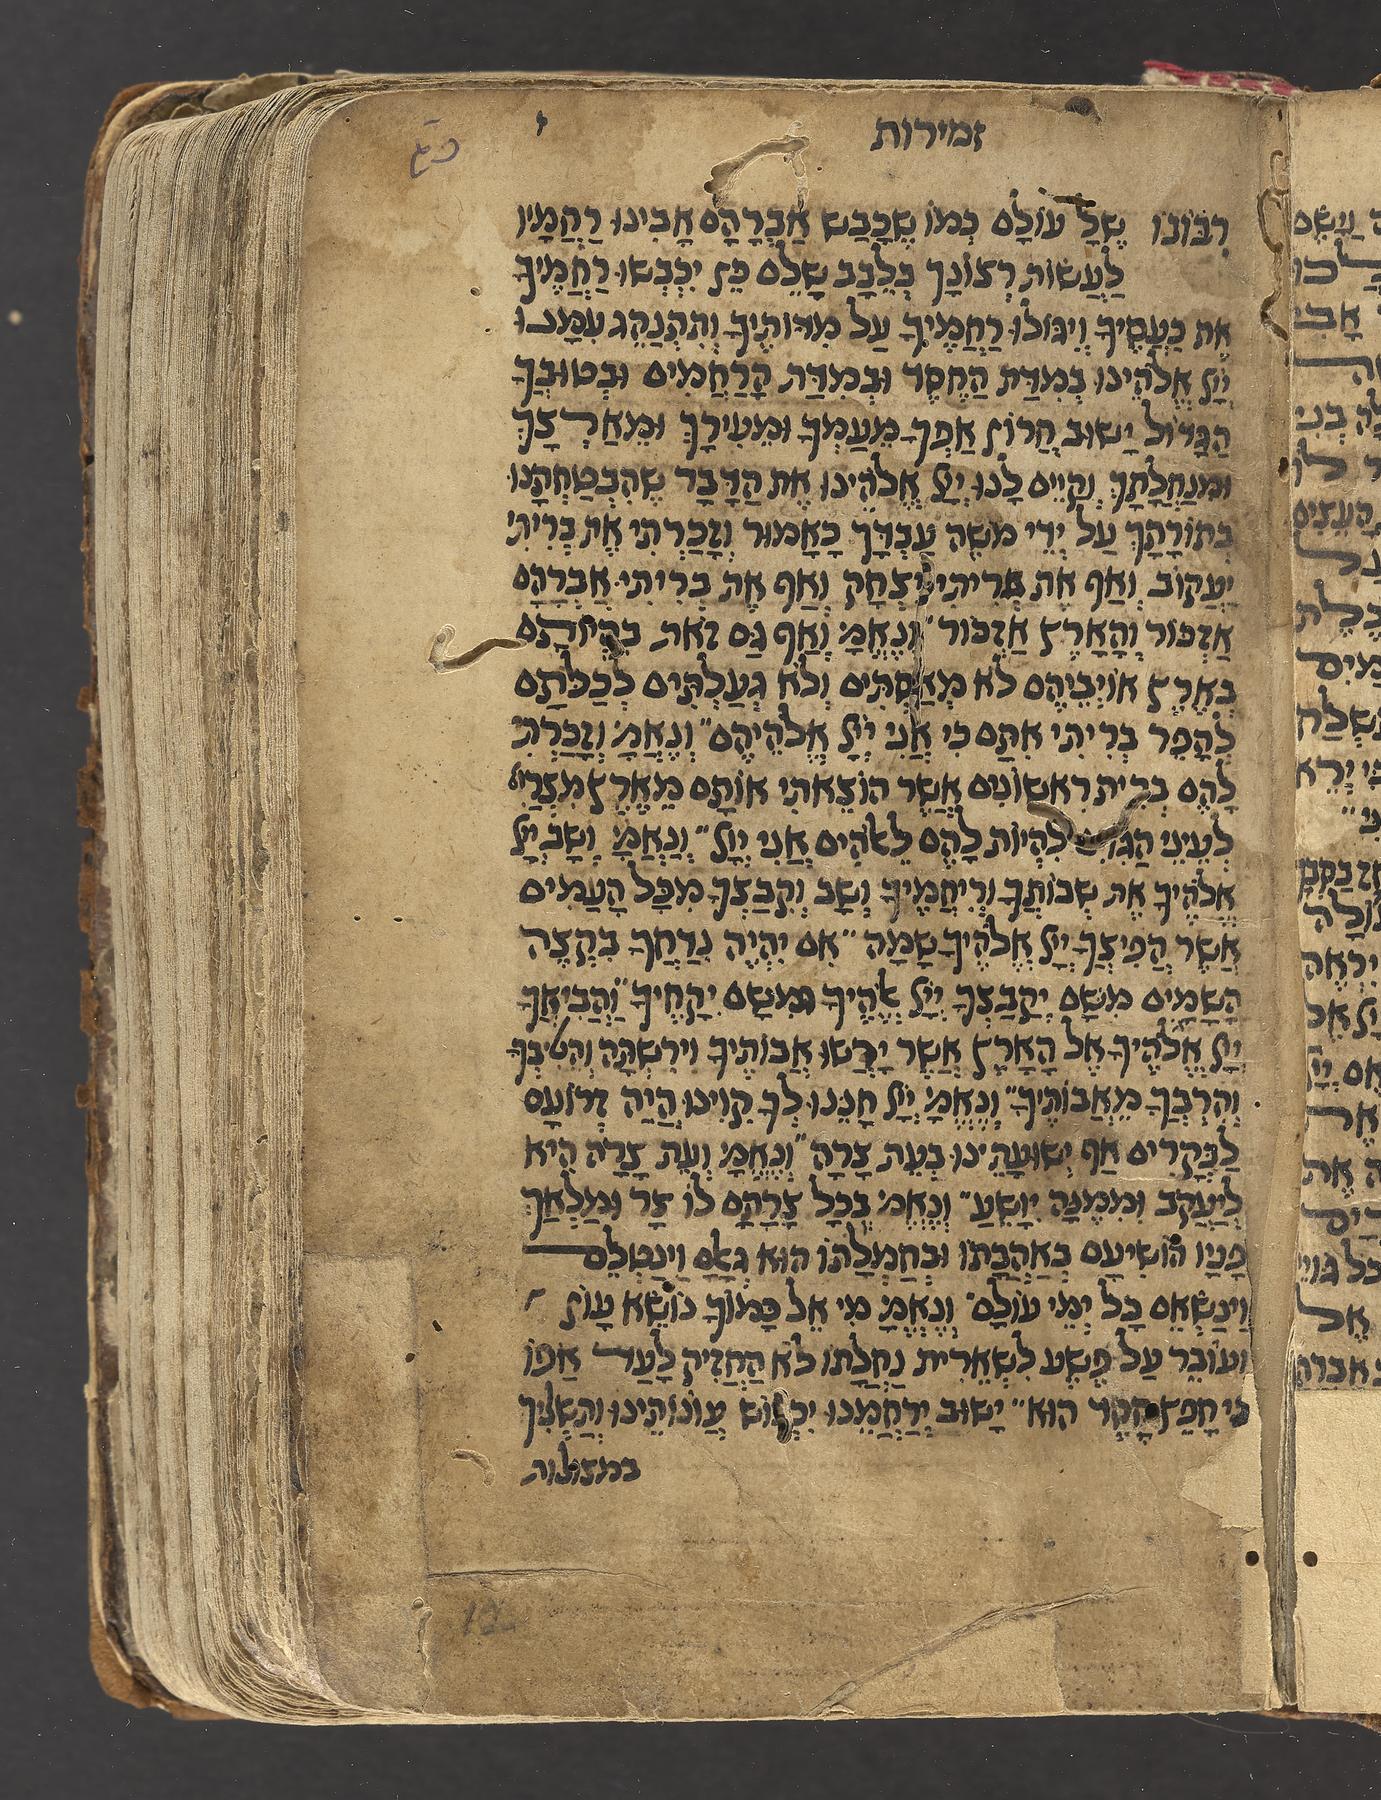 זמירות
רבונו של עולם כמו שכבש אברהם אבינו רחמיו
לעשות רצונך בלבב שלם כן יכבשו רחמיך
את כעסיך ויגולו רחמיך על מדותיך ותתנהג עמנו
ייי אלהינו במדת החסד ובמדת הרחמים ובטובך
הגדול ישוב חרון אפך מעמך ומעירך ומארצך
ומנחלתך וקיים לנו ייי אלהינו את הדבר שהבטחתנו
בתורתך על ידי משה עבדך כאמור וזכרתי את בריתי
יעקוב ואף את בריתי יצחק ואף את בריתי אברהם
אזכור והארץ אזכור ונאמ' ואף גם זאת בהיותם
בארץ אויביהם לא מאסתים ולא געלתים לכלתם
להפר בריתי אתם כי אני ייי אלהיהם" ונאמ' וזכרתי
להם ברית ראשונים אשר הוצאתי אותם מארץ מצרים
לעיני הגוים להיות להם לאלהים אני ייי" ונאמ' ושב ייי
אלהיך את שבותך וריחמיך ושב וקבצך מכל העמים
אשר הפיצך ייי אלהיך שמה" אם יהיה נדחך בקצה
השמים משם יקבצך ייי אלהיך ומשם יקחיך" והביאך
ייי אלהיך אל הארץ אשר ירשו אבותיך וירשתה והטיבך
והרבך מאבותיך" ונאמ' ייי חננו לך קוינו היה זרועם
לבקרים אף ישועתינו בעת צרה" ונאמ' ועת צרה היא
ליעקב וממנה יושע" ונאמ' בכל צרתם לו צר ומלאך
פניו הושיעם באהבתו ובחמלתו הוא גאלם וינטלם
וינשאם כל ימי עולם" ונאמ' מי אל כמוך נושא עון
ועובר על פשע לשארית נחלתו לא החזיק לעד אפו
כי חפץ חסד הוא" ישוב ירחמנו יכבוש עונותינו ותשליך
במצולות